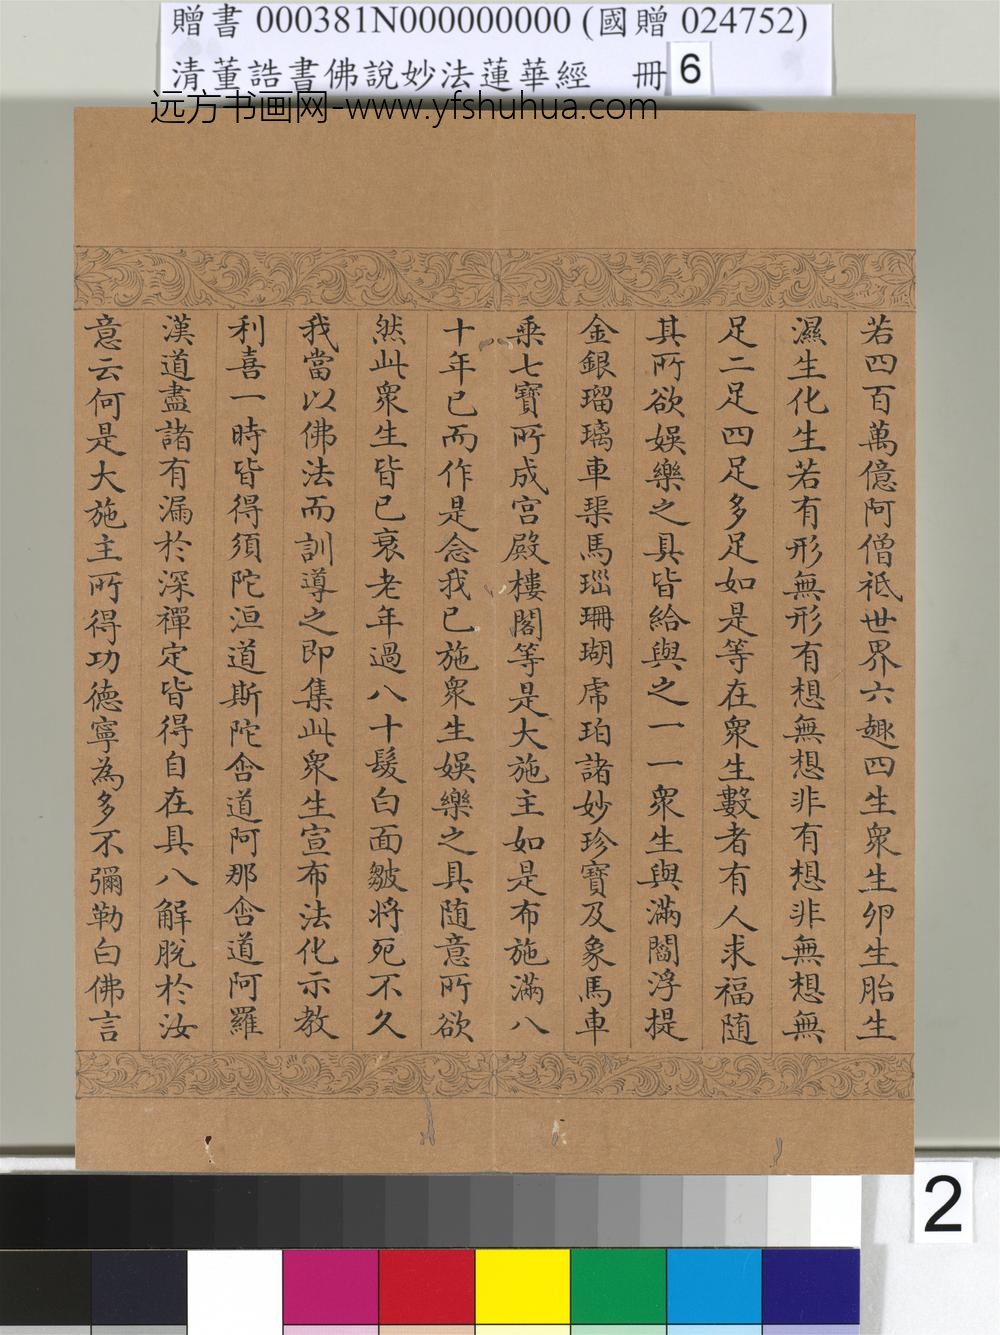 贈書 000381N000000000 (國贈 024752)
清董誥書佛說妙法蓮華經 冊 6
远方书画网-www.yfshuhua.com
若四百萬億阿僧祇世界六趣四生眾生卵生胎生
濕生化生若有形無形有想無想非有想非無想無
足二足四足多足如是等在眾生數者有人求福随
其所欲娛樂之具皆給與之一一眾生與滿閻浮提
金銀瑠璃車璖馬瑙珊瑚虎珀諸妙珍寶及象馬車
乘七寶所成宮殿樓閣等是大施主如是布施滿八
十年已而作是念我已施眾生娛樂之具随意所欲
然此眾生皆已衰老年過八十髮白面皺將死不久
我當以佛法而訓導之即集此眾生宣布法化示教
利喜一時皆得須陀洹道斯陀含道阿那含道阿羅
漢道盡諸有漏於深禪定皆得自在具八解脫於汝
意云何是大施主所得功德寧為多不彌勒白佛言
2